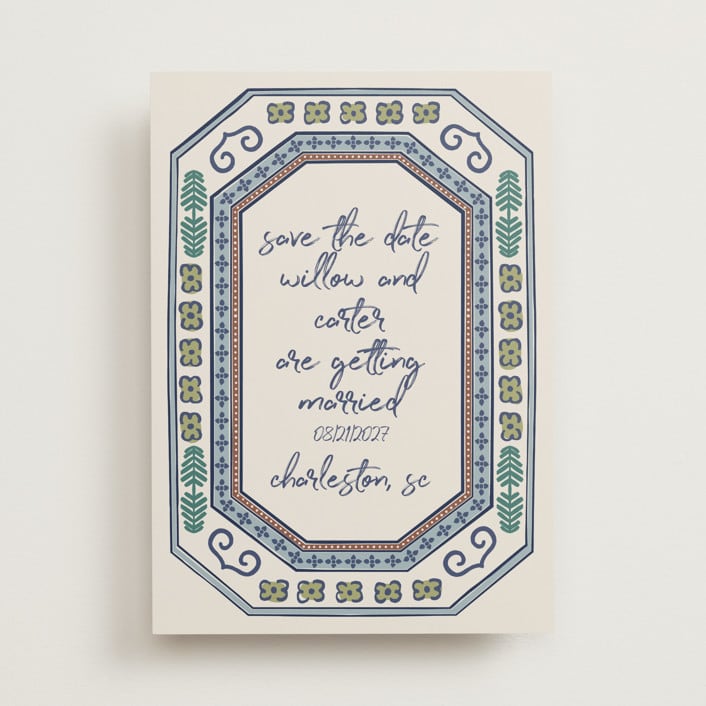 save the date
willow and
carter
are getting
married
08/21/2027
charleston, sc